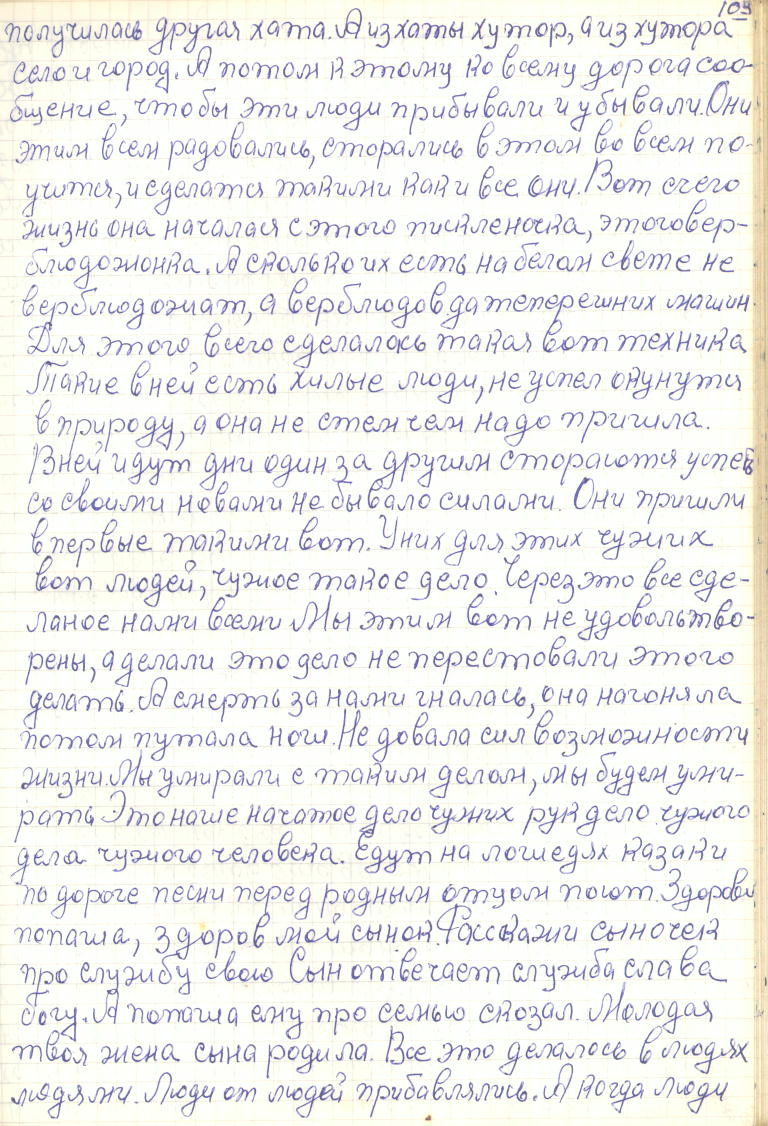 103
получилась другая хата. А из хаты хутор, а из хутора
село и город. А потом к этому ко всему дорога соо-
бщение, чтобы эти люди прибывали и убывали. Они
этим всем радовались, сторались в этом во всем по-
учится, и сделатся такими как и все они. Вот с чего
жизнь она началася с этого пискленочка, этого вер-
блюдожонка. А сколько их есть на белом свете не
верблюдожат, а верблюдов да теперешних машин.
Для этого всего сделалось такая вот техника
Такие в ней есть хилые люди, не успел окунутся
в природу, а она не с тем чем надо пришла.
В ней идут дни один за другим стораются успеть
со своими новами не бывало силами. Они пришли
впервые такими вот. У них для этих чужих
вот людей, чужое такое дело. Через это все сде-
ланое нами всеми Мы этим вот не удовольтво-
рены, а делали это дело не перестовали этого
делать. А смерть за нами гналась, она нагоняла
потом путала ноги. Не довала сил возможности
жизни. Мы умирали с таким делом, мы будем уми-
рать Это наше начатое дело чужих рук дело чужого
дела чужого человека. Едут на лошедях казаки
по дороге песни перед родным отцом поют. Здоровы
попаша, здоров мой сынок. Расскажи сыночек
про службу свою Сын отвечает служба слава
богу. А попаша ему про семью скозал. Молодая
твоя жена сына родила. Все это делалось в людях
людями. Люди от людей прибавлялись. А когда люди